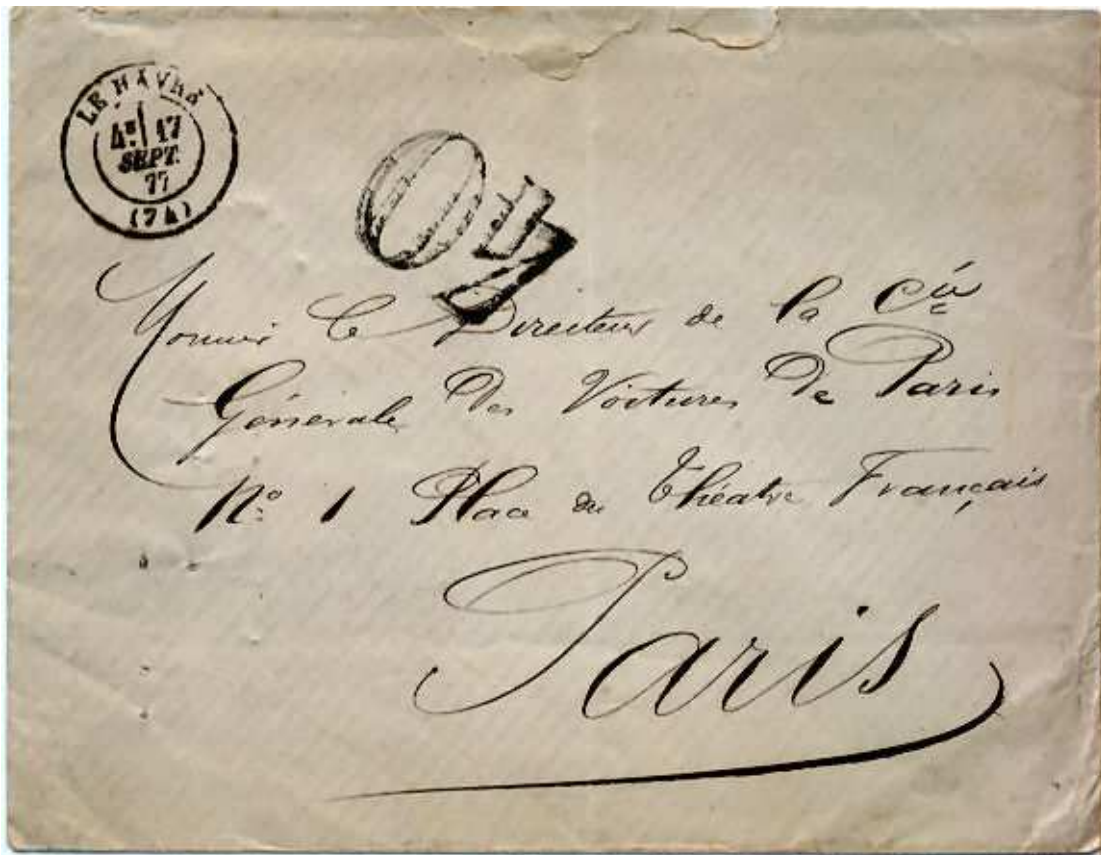 LE HAVRE
4E 17
SEPT.
77
(74)
Monsieur le Directeur de la Cie
Générale des Voitures de Paris
No 1 Place du Théatre Français
Paris